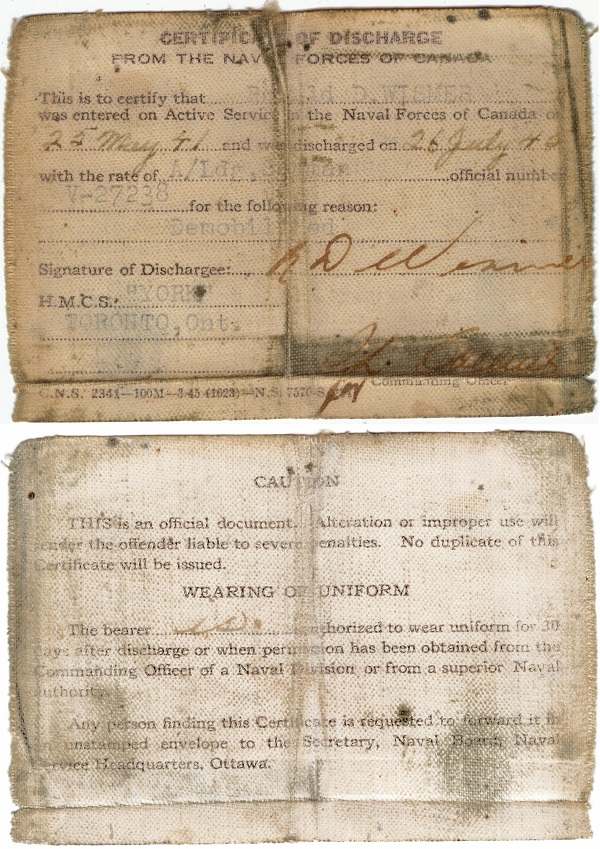 CERTIFICATE OF DISCHARGE
FROM THE NAVAL FORCES OF CANADA
This is to certify that D. WISMER
was entered on Active Service in the Naval Forces of Canada on
25 May 41 and was discharged on 26 July 45
with the rate of A/Ldg. official number
V-27238 for the following reason:
Demobilized
Signature of Dischargee: R D Wismer
H.M.C.S. "YORK"
TORONTO, Ont.
for Commanding Officer
C.N.S. 2341—100M—3-45 (1623)—N.S. 7570-8
CAUTION
THIS is an official document. Alteration or improper use will
render the offender liable to severe penalties. No duplicate of this
Certificate will be issued.
WEARING OF UNIFORM
The bearer is authorized to wear uniform for 30
days after discharge or when permission has been obtained from the
Commanding Officer of a Naval Division or from a superior Naval
authority.
Any person finding this Certificate is requested to forward it in
an unstamped envelope to the Secretary, Naval Board, Naval
Service Headquarters, Ottawa.